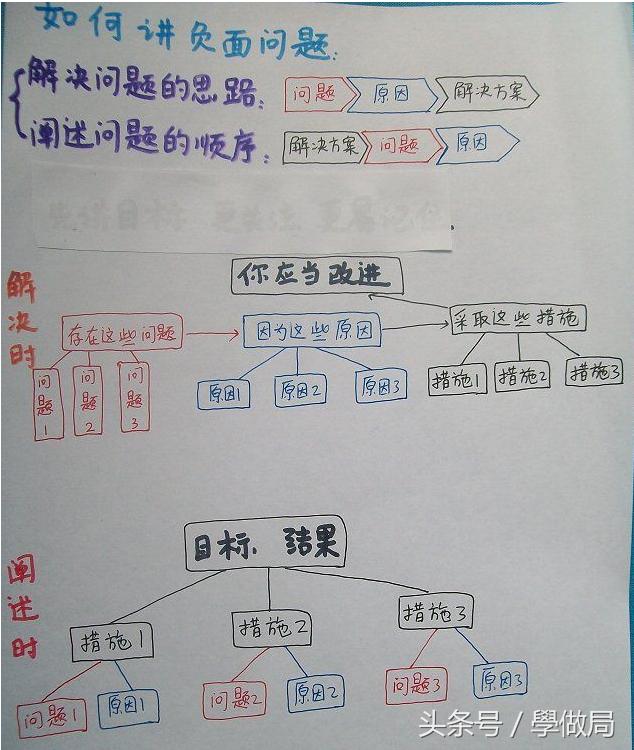 如何讲负面问题:
解决问题的思路: 问题 原因 解决方案
阐述问题的顺序: 解决方案 问题 原因
你应当改进
解决时
存在这些问题 因为这些原因 采取这些措施
问题1 问题2 问题3 原因1 原因2 原因3 措施1 措施2 措施3
目标、结果
阐述时
措施1 措施2 措施3
问题1 原因1 问题2 原因2 问题3 原因3
头条号 / 學做局